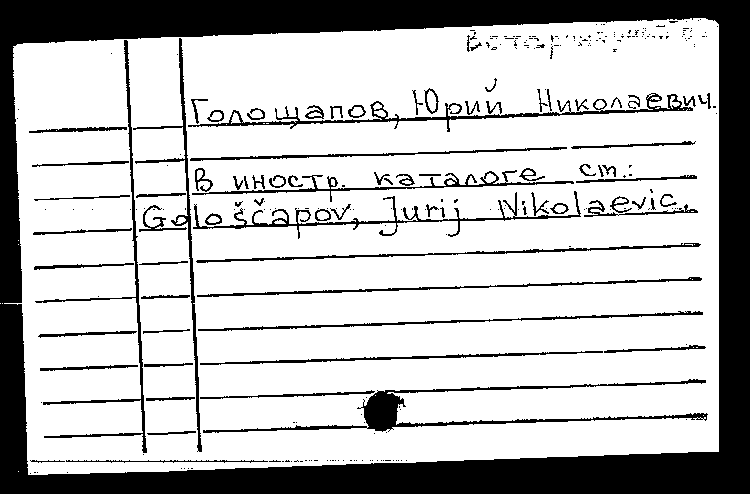 Ветеринарный
Голощапов, Юрий Николаевич.
В иностр. каталоге см.:
Gološčapov, Jurij Nikolaevic.